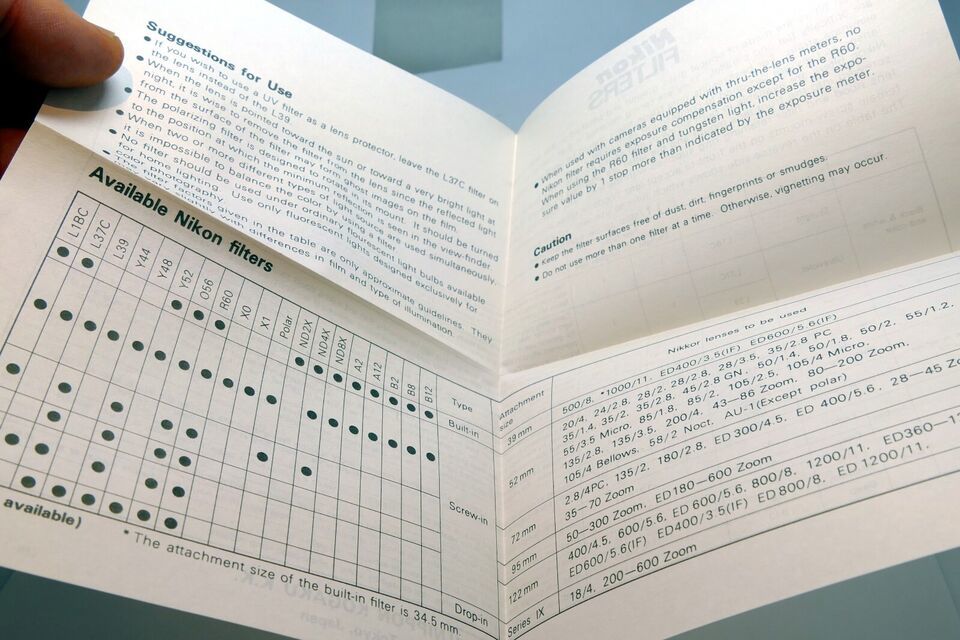 Suggestions for Use
● If you wish to use a UV filter as a lens protector, leave the L37C filter on
the lens instead of the L39.
● When the lens is pointed toward the sun or toward a very bright light at
night, it is wise to remove the filter from the lens since the reflected light
from the surface of the filter may form ghost images on the film.
● The polarizing filter is designed to rotate in its mount. It should be turned
to the position at which the minimum reflection is seen in the view-finder.
● When two or more different types of light source are used simultaneously,
it is impossible to balance the color by using a filter.
● No filter should be used under ordinary fluorescent light bulbs available
for home lighting. Use only fluorescent lights designed exclusively for
color photography.
● The filter factors given in the table are only approximate guidelines. They
differences in film and type of illumination.
● When used with cameras equipped with thru-the-lens meters, no
Nikon filter requires exposure compensation except for the R60.
When using the R60 filter and tungsten light, increase the expo-
sure value by 1 stop more than indicated by the exposure meter.
Caution
● Keep the filter surfaces free of dust, dirt, fingerprints or smudges.
● Do not use more than one filter at a time. Otherwise, vignetting may occur.
Nikon
FILTERS
Available Nikon filters
L1BC
L37C
L39
Y44
Y48
Y52
O56
R60
X0
X1
Polar
ND2X
ND4X
ND8X
A2
A12
B2
B8
B12
Type
Built-in
Screw-in
Drop-in
available)
* The attachment size of the built-in filter is 34.5 mm.
Attachment
size
Nikkor lenses to be used
500/8, *1000/11, ED400/3.5(IF) ED600/5.6(IF)
39 mm
20/4, 24/2.8, 28/2, 28/2.8, 28/3.5, 35/2.8 PC
52 mm
35/1.4, 35/2, 35/2.8, 45/2.8 GN, 50/1.4, 50/1.8, 50/2, 55/1.2,
55/3.5 Micro, 85/1.8, 85/2, 105/2.5, 105/4 Micro,
135/2.8, 135/3.5, 200/4, 43—86 Zoom, 80—200 Zoom,
105/4 Bellows, 58/2 Noct, AU-1(Except polar)
72 mm
2.8/4PC, 135/2, 180/2.8, ED 300/4.5, ED 400/5.6, 28—45
35—70 Zoom
95 mm
50—300 Zoom, ED180—600 Zoom
122 mm
400/4.5, 600/5.6, ED 600/5.6, 800/8, 1200/11, ED360—
ED600/5.6(IF) ED400/3.5(IF) ED800/8, ED 1200/11,
Series IX
18/4, 200—600 Zoom